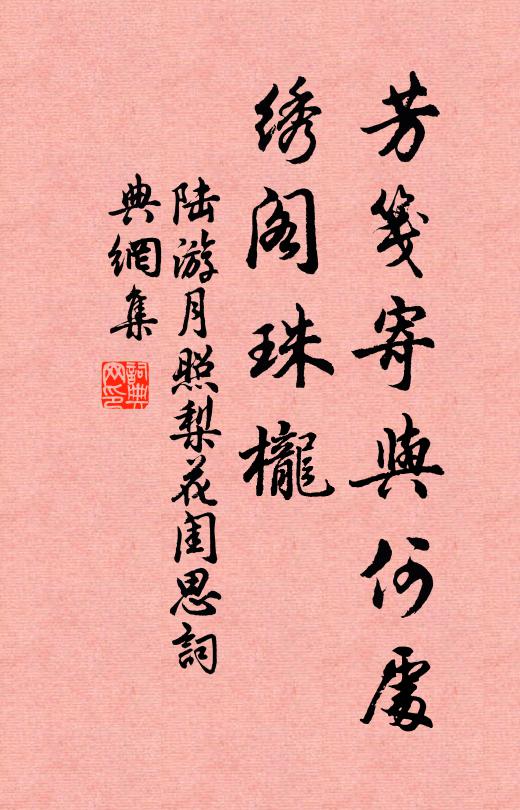 芳箋寄與何處
绣阁珠櫳
陆游月照梨花閨思詞
典網集
詞典網印